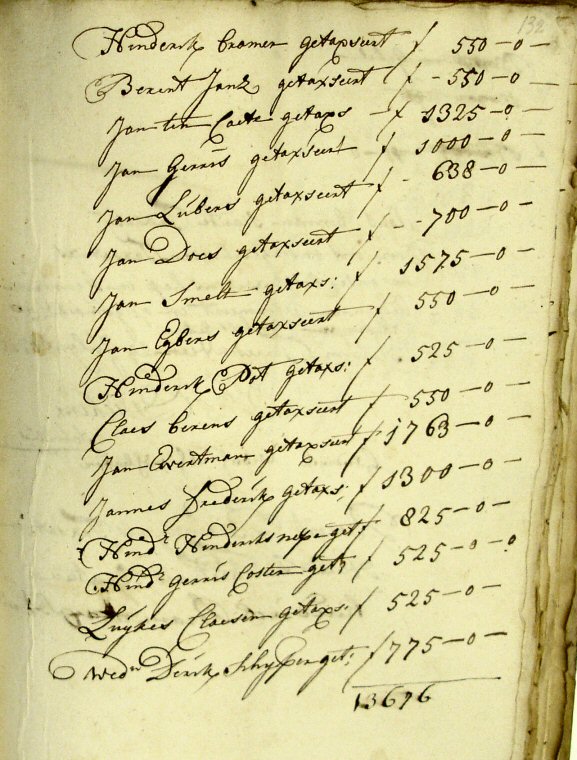 132
Hinderik Cramer getaxseert f 550-0-
Berent Jans getaxseert f - 550-0-
Jan ten Caete getaxs - f 1325-0-
Jan Gerris getaxseert f 1000-0-
Jan Lúbers getaxseert f - 638-0-
Jan Does getaxseert f - - 700-0-
Jan Smelt getaxs: f 1575-0-
Jan Egbers getaxseert f 550-0-
Hinderik Pot getaxs: f 525-0-
Claes berens getaxseert f 550-0-
Jan Evertman getaxseert f 1763-0-
Jannes frederik getaxs: f 1300-0-
Hindr Hinderiks get: f 825-0-
Hindr Gerris Coster get: f 525-0-0
Lúykes Claesen getaxs: f 525-0-
Wedn Derik Schypper get: f 775-0-
13676